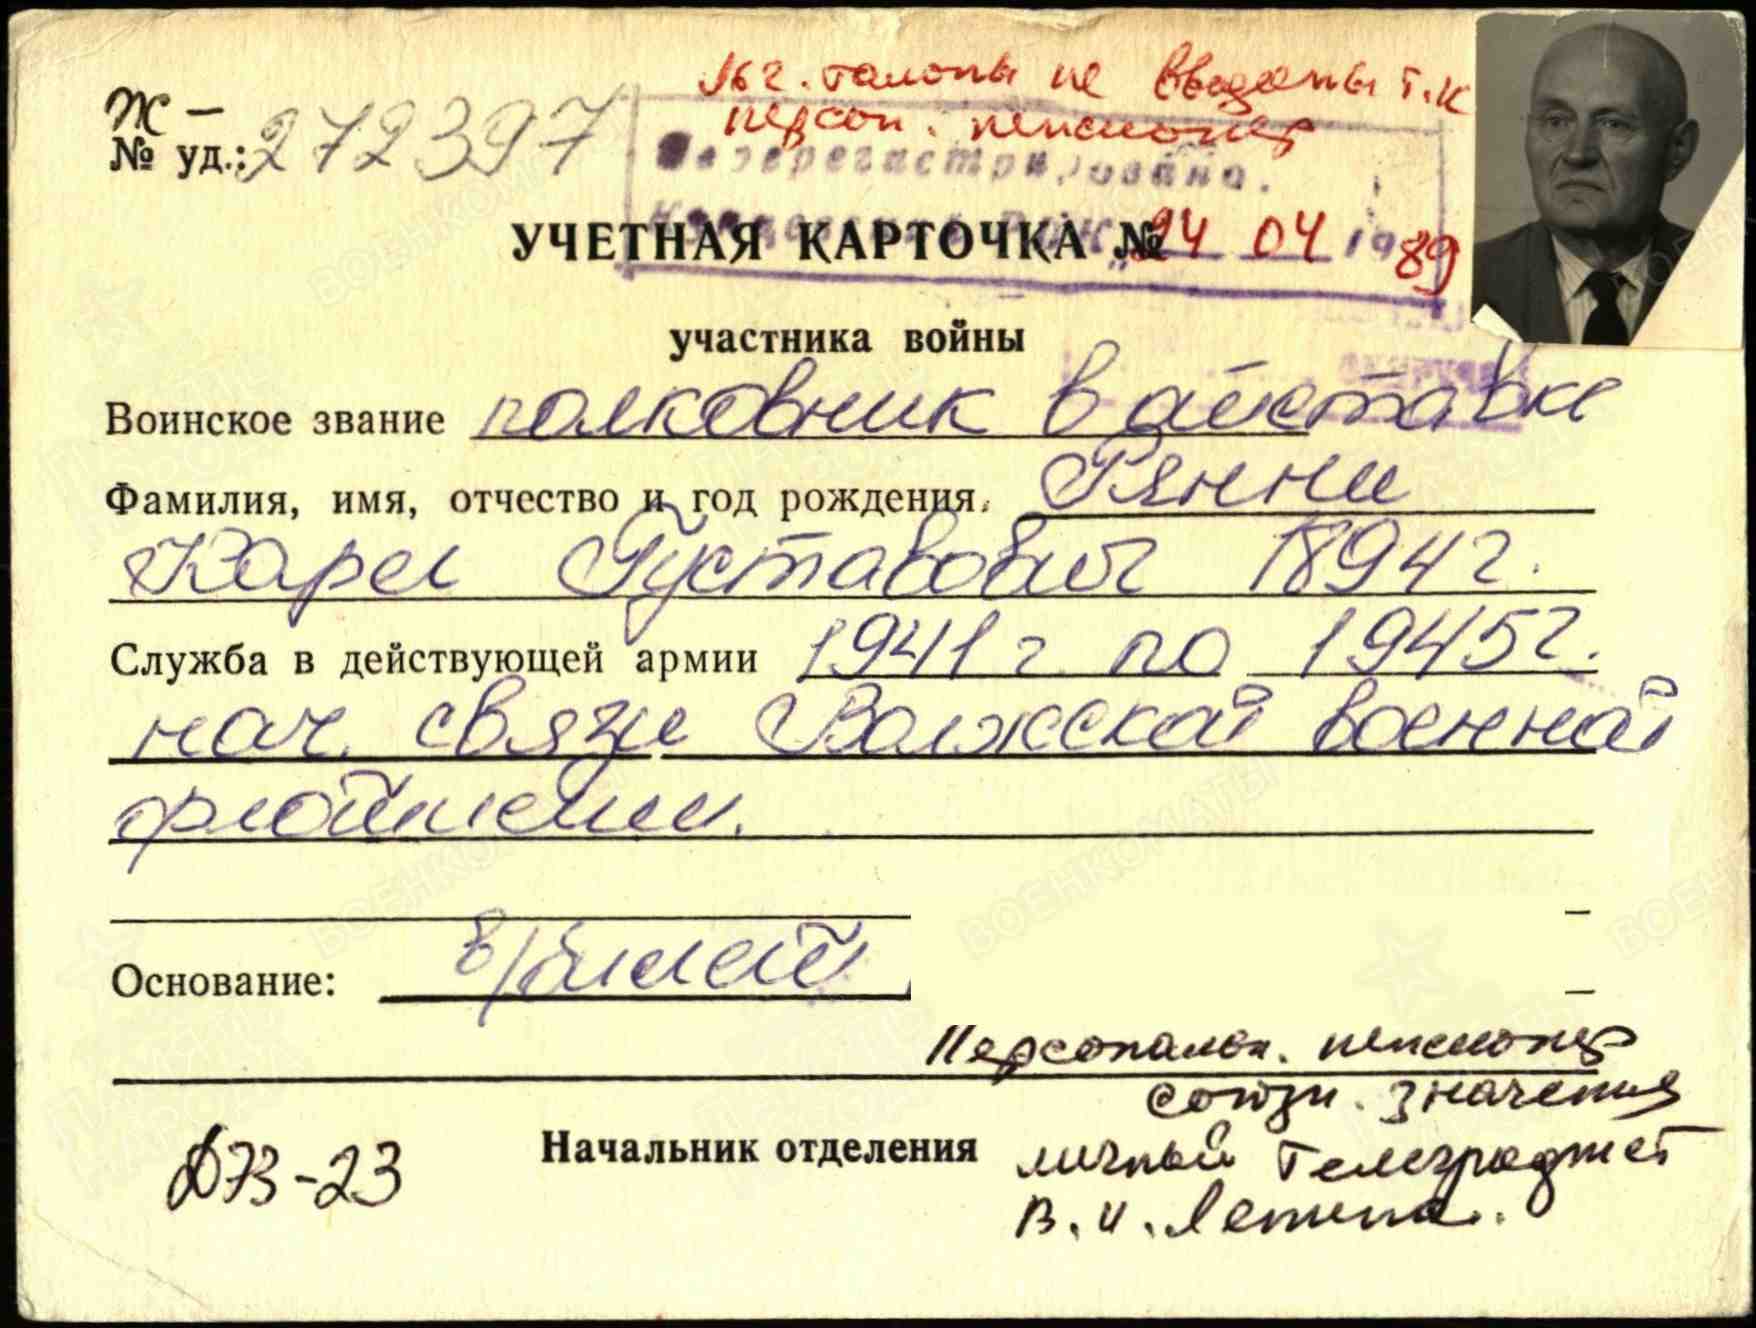 талоны не введены т.к
персон. пенсионер
Ж —
№ уд.: 272397
Перерегистрирована.
УЧЕТНАЯ КАРТОЧКА №
24 04 1989
участника войны
Воинское звание полковник в отставке
Фамилия, имя, отчество и год рождения. Рянни
Карл Густавович 1894 г.
Служба в действующей армии 1941 г по 1945 г.
нач. связи Волжской военной
флотилии.
Основание: в/билет
Персональн. пенсионер
союзн. значения
Начальник отделения личный телеграфист
В. И. Ленина.
ДЭЗ-23
ПАМЯТЬ НАРОДА
ВОЕНКОМАТЫ